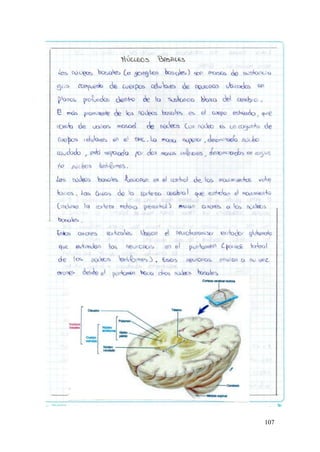 NÚCLEOS BASALES
Los núcleos basales (o ganglios basales) son masas de sustancia
gris compuesta de cuerpos celulares de neuronas ubicadas en
planos profundos dentro de la sustancia blanca del cerebro.
El más prominente de los núcleos basales es el cuerpo estriado, que
consta de varias masas de núcleos (un núcleo es un conjunto de
cuerpos celulares en el SNC. La masa superior, denominada núcleo
caudado, está separada por dos masas inferiores, denominadas en conjun
to núcleos lentiformes.
Los núcleos basales funcionan en el control de los movimientos volun
tarios. Las áreas de la corteza cerebral que controlan el movimiento
(incluso la corteza motora precentral) envían axones a los núcleos
basales.
Estos axones corticales liberan el neurotransmisor excitador glutamato
que estimulan las neuronas en el putamen (porción lateral
de los núcleos lentiformes). Estas neuronas envían a su vez
axones desde el putamen hacia otros núcleos basales.
Corteza cerebral motora
Claustro
Putamen
Núcleo
lentiforme
Globo
pálido
Núcleos
basales
Cuerpo
estriado
Núcleo
caudado
Tálamo
Cerebelo
Médula espinal
107